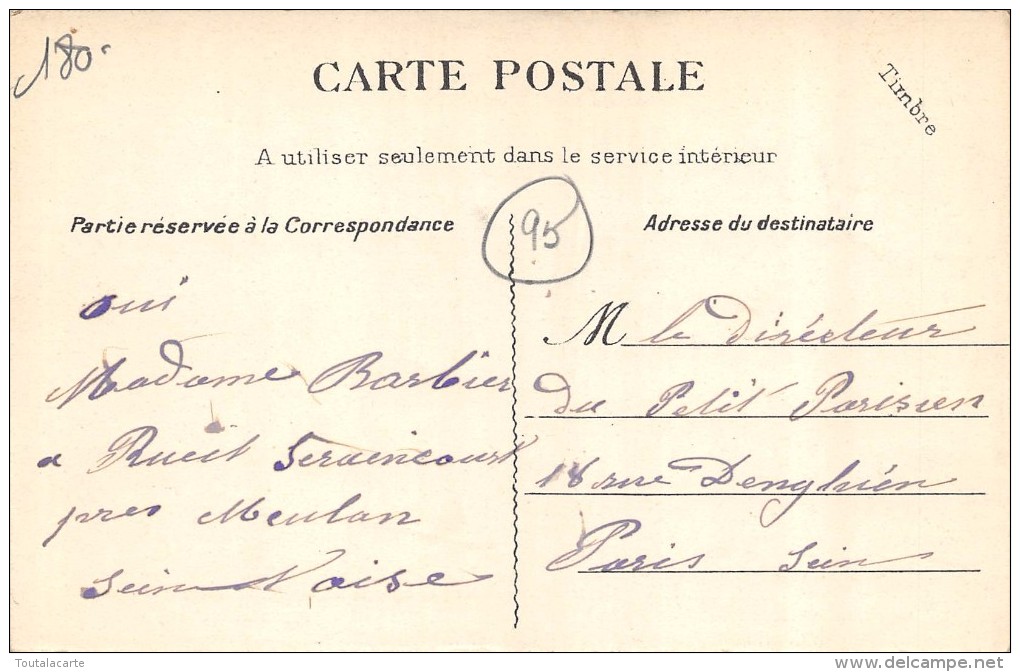 180-
CARTE POSTALE
Timbre
A utiliser seulement dans le service intérieur
Partie réservée à la Correspondance
95
Adresse du destinataire
oui
Madame Barbier
a Rueil Seraincourt
pres Meulan
Sein Noise
M le Dirécteur
du Petit Parisien
18 rue Denghién
Paris Sein
Toutalacarte
delcampe.net